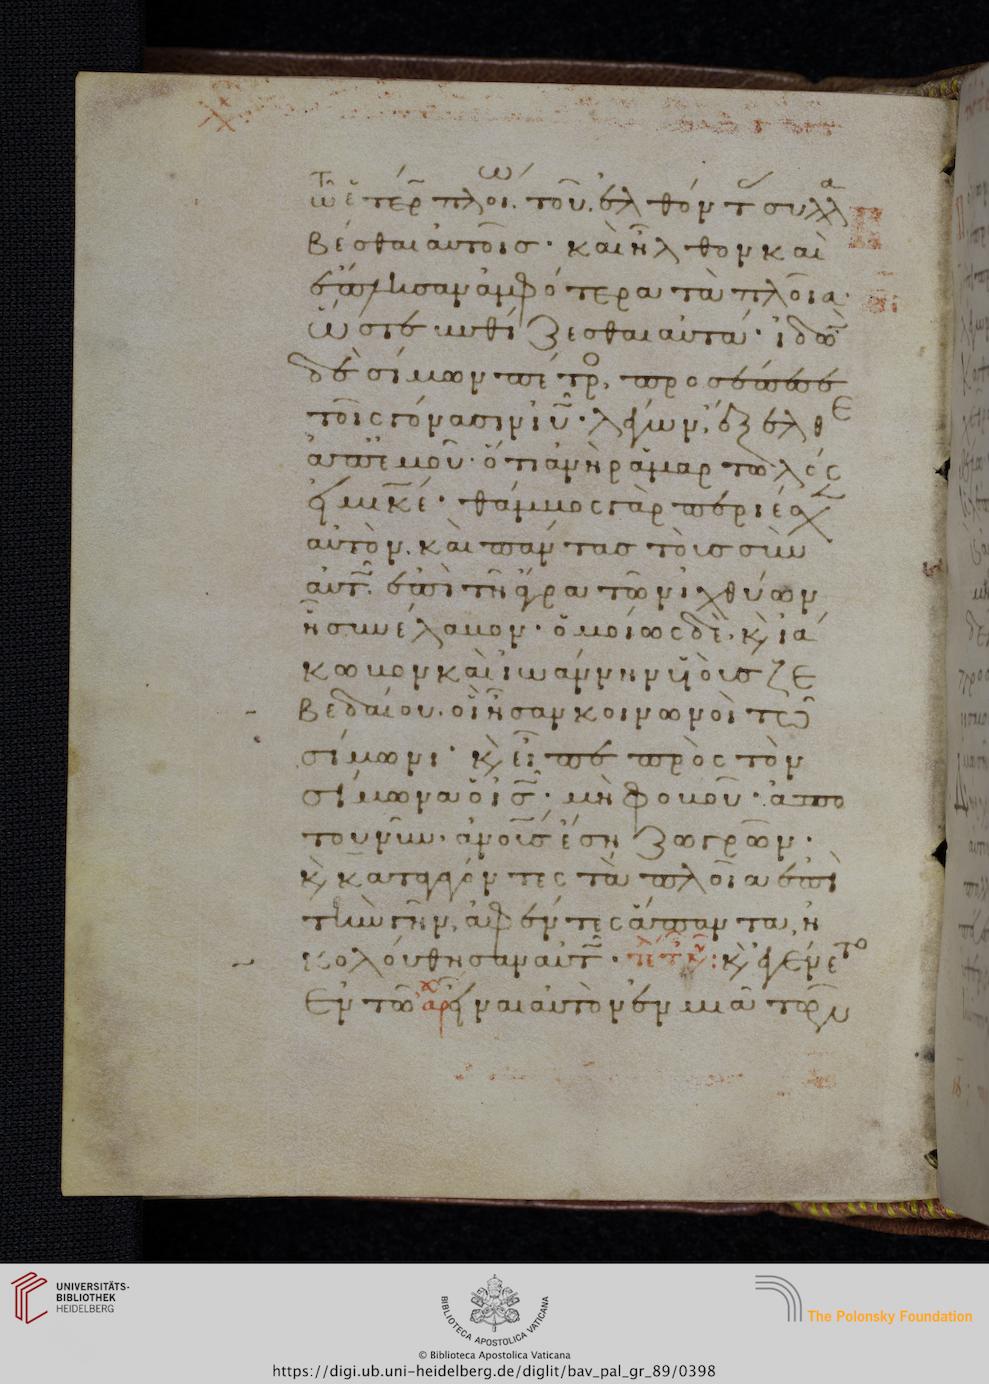 τῶ ἑτέρ πλοί. τοῦ. ἐλθόντ συλλα
βέσθαι αὐτοῖσ· καὶ ἦλθον καὶ
ἔπλησαν ἀμφότερα τὰ πλοῖα·
ὥστε βυθίζεσθαι αὐτά· ἰδὼν
δὲ σίμων πέτρο, προσέπεσε
τοῖς γόνασιν ἰῦ· λέγων, ἔξελθε
ἀπ' ἐμοῦ· ὅτι ἀνὴρ ἁμαρτωλός
εἰμι κε· θάμβος γὰρ περιέσχ
αὐτὸν. καὶ πάντασ τοὺσ σὺν
αὐτῶ. ἐπὶ τῆ ἄγρα τῶν ἰχθύων
ἧ συνέλαβον· ὁμοίως δὲ, κ ἰά
κωβον καὶ ἰωάννην υἱοὺσ ζε
βεδαίου. οἳ ἦσαν κοινωνοὶ τῶ
σίμωνι· κ εἶπε πρὸς τὸν
σίμωνα ὁ ισ· μὴ φοβοῦ· ἀπο
τοῦ νῦν. ἀνουσ ἔση ζωγρῶν·
κ καταγαγόντες τὰ πλοῖα ἐπὶ
τὴν γῆν, ἀφέντες ἅπαντα, ἠ
κολούθησαν αὐτῶ· κ ἐγένετο
ἐν τῶ εἶναι αὐτὸν ἐν μιᾶ τῶν
UNIVERSITÄTS-
BIBLIOTHEK
HEIDELBERG
BIBLIOTECA APOSTOLICA VATICANA
The Polonsky Foundation
© Biblioteca Apostolica Vaticana
https://digi.ub.uni-heidelberg.de/diglit/bav_pal_gr_89/0398